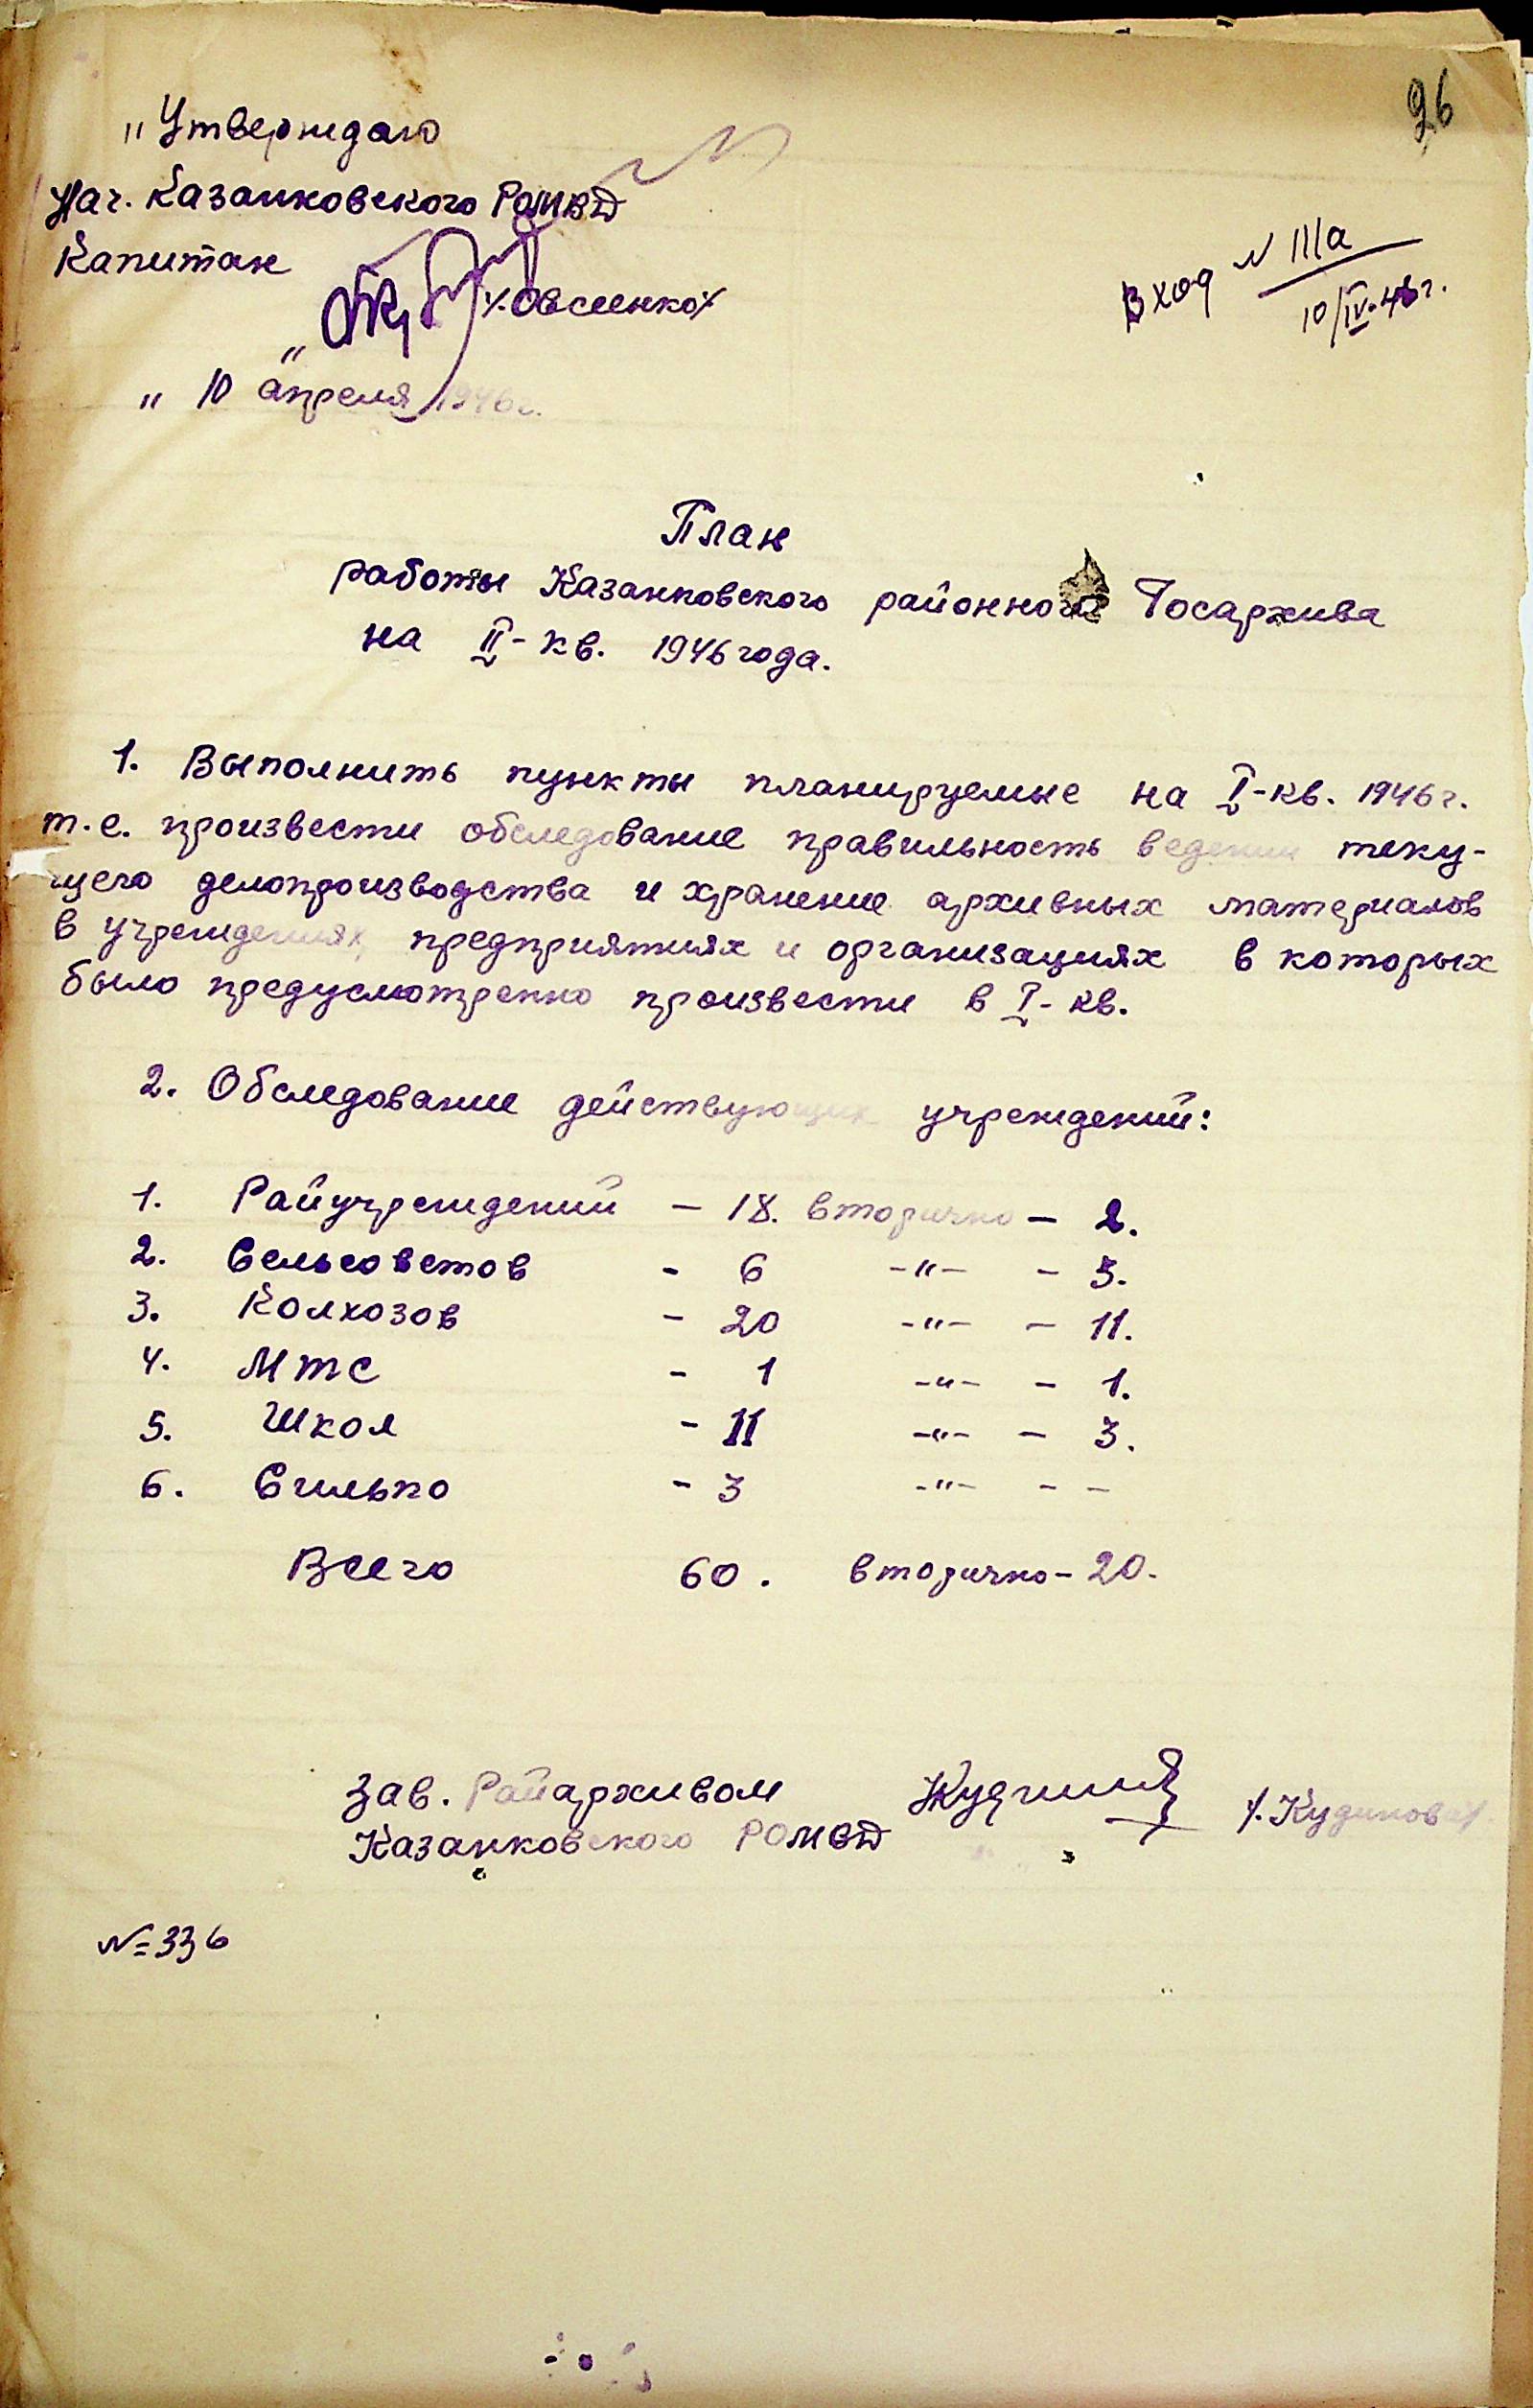 26
„Утверждаю
Нач. Казанковского РОМВД
Капитан
/Овсиенко/
Вход N 111а
10/IV-46г.
„ 10 „ апреля 1946г.
План
работы Казанковского районного Госархива
на II-кв. 1946 года.
1. Выполнить пункты планируемые на I-кв. 1946 г.
т.е. произвести обследование правильность ведении теку-
щего делопроизводства и хранение архивных материалов
в учреждениях, предприятиях и организациях в которых
было предусмотренно произвести в I-кв.
2. Обследование действующих учреждений:
1. Райучреждений – 18. вторично – 2.
2. Сельсоветов - 6 -"- - 3.
3. Колхозов - 20 -"- - 11.
4. МТС - 1 -"- - 1.
5. Школ - 11 -"- - 3.
6. Сильпо - 3 -"- - -
Всего 60. вторично - 20.
Зав. Райархивом
Казанковского РОМВД /Кудинова/
№ 336